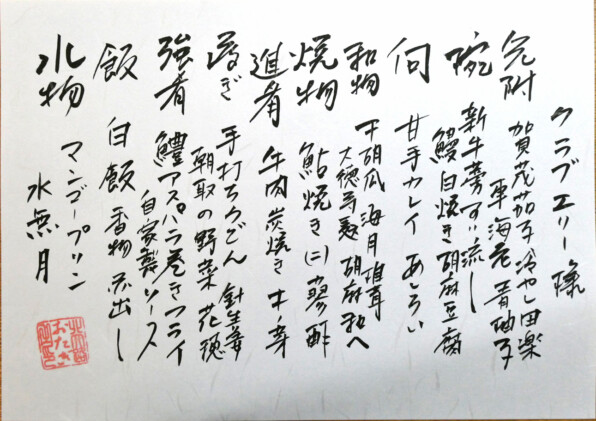 クラブエリー様
先附 賀茂茄子冷やし田楽
車海老 青柚子
椀 新牛蒡すり流し
鰻白焼き胡麻豆腐
向 甘手カレイ あしらい
和物 干胡瓜 海月 椎茸
大徳寺麩 胡麻和へ
焼物 鮎焼き(二) 蓼酢
進肴 牛肉炭焼き
凌ぎ 手打ちうどん 針生姜
朝取の野菜 花穂
強肴 鱧アスパラ巻きフライ
自家製ソース
飯 白飯 香物 赤出し
水物 マンゴープリン
水無月